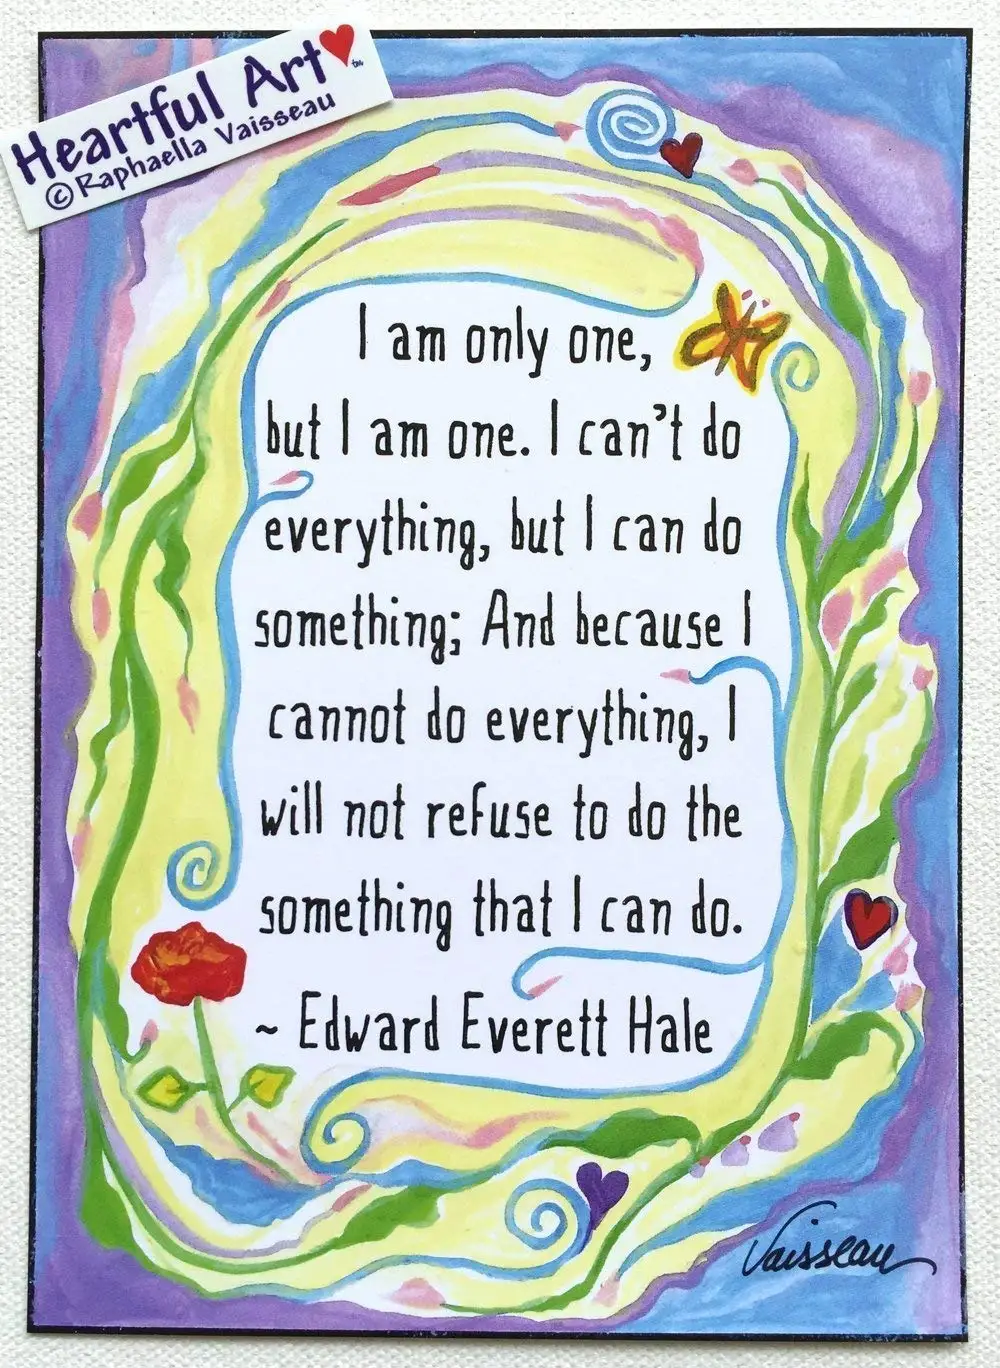 Heartful Art™
©Raphaella Vaisseau
I am only one,
but I am one. I can't do
everything, but I can do
something; And because I
cannot do everything, I
will not refuse to do the
something that I can do.
~ Edward Everett Hale
Vaisseau